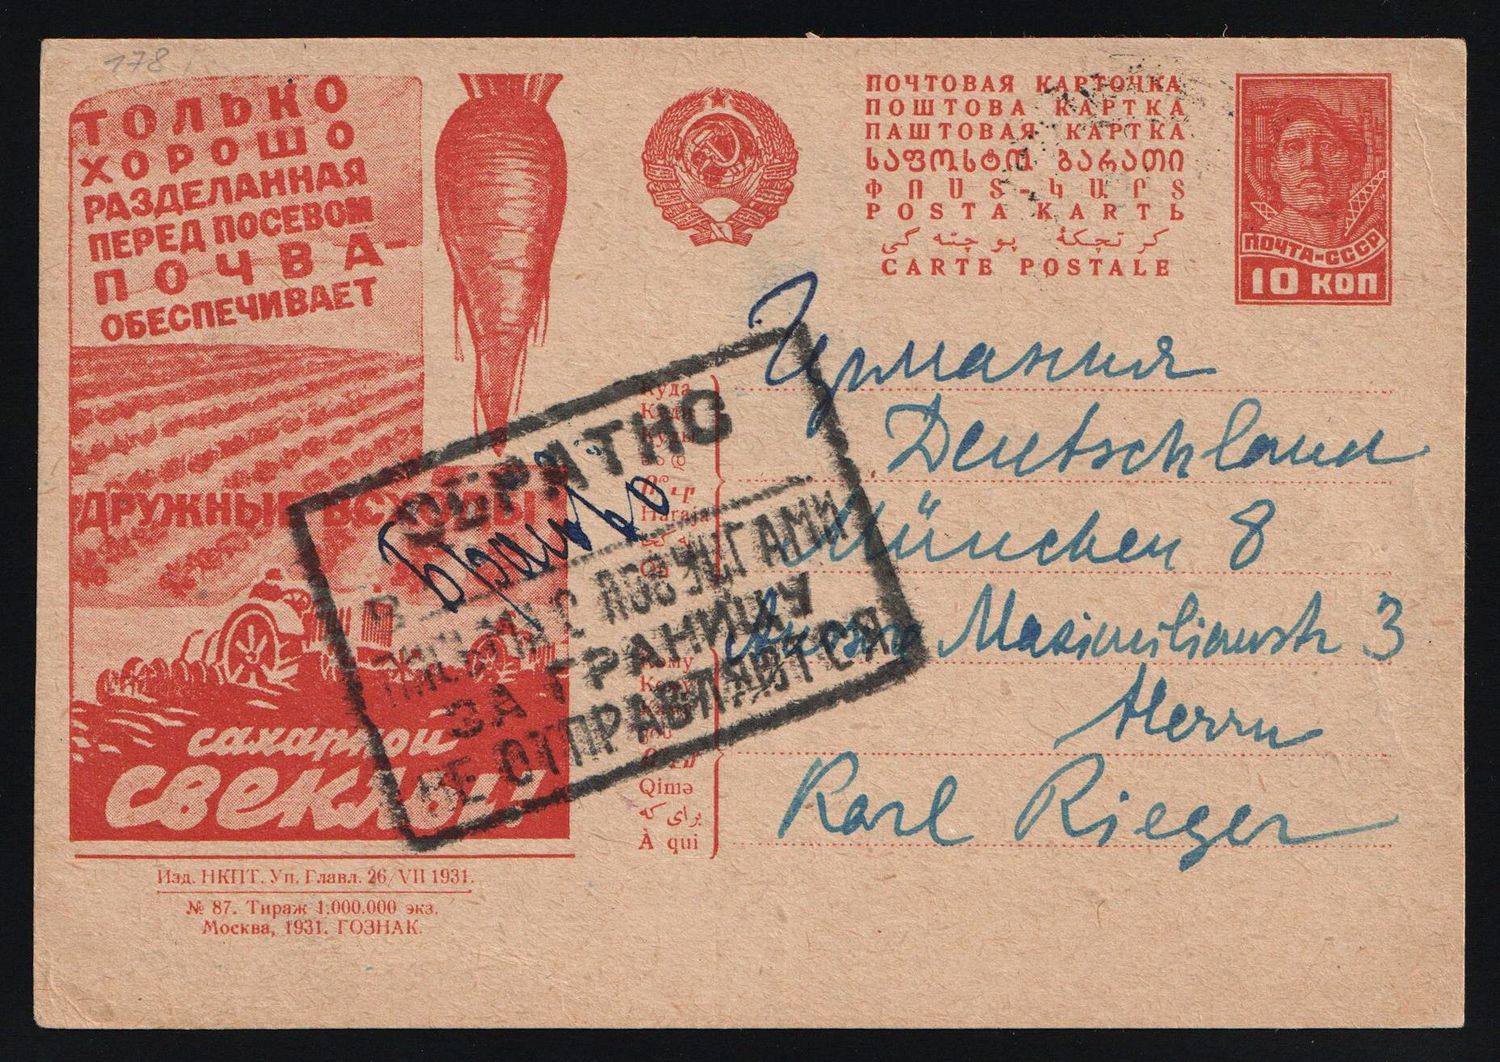 178
ТОЛЬКО
ХОРОШО
РАЗДЕЛАННАЯ
ПЕРЕД ПОСЕВОМ
ПОЧВА-
ОБЕСПЕЧИВАЕТ
ДРУЖНЫЕ ВСХОДЫ
сахарной
СВЕКЛЫ!
Изд. НКПТ. Уп. Главл. 26/VII 1931.
№ 87. Тираж 1.000.000 экз.
Москва, 1931. ГОЗНАК.
ПОЧТОВАЯ КАРТОЧКА
ПОШТОВА КАРТКА
ПАШТОВАЯ КАРТКА
ᲡᲐᲤᲝᲡᲢᲝ ᲑᲐᲠᲐᲗᲘ
ՓՈՍՏ-ԿԱՐՏ
POSTA KARTЬ
كرتچكهٔ پوچته كی
CARTE POSTALE
ПОЧТА-СССР
10 КОП
ОБРАТНО
В
С ЛОЗУНГАМИ
ЗА ГРАНИЦУ
НЕ ОТПРАВЛЯЮТСЯ
Куда
Haraja
Кому
Qimə
برای که
À qui
Германия
Deutschland
München 8
Maximilianstr 3
Herrn
Karl Rieger